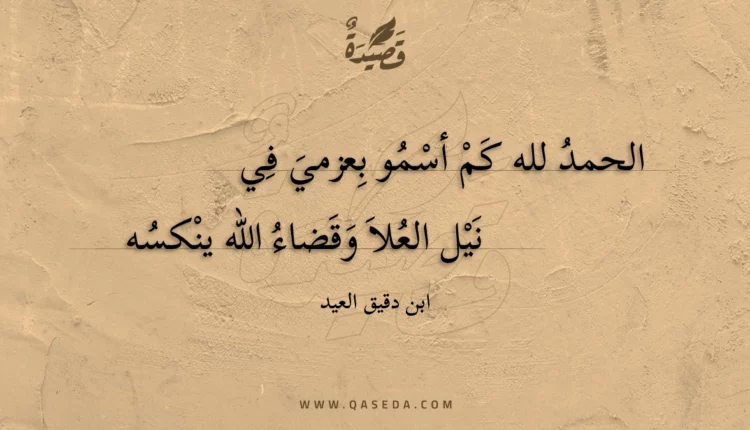 قَصِيدَةٌ
الحمدُ لله كَمْ أسْمُو بِعزميَ فِي
نَيْل العُلاَ وَقَضاءُ الله ينْكسُه
ابن دقيق العيد
WWW.QASEDA.COM